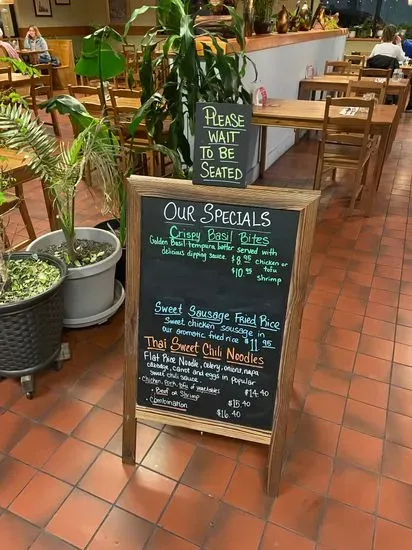 PLEASE
WAIT
TO BE
SEATED
OUR SPECIALS
CRISPY BASIL BITES
Golden Basil tempura batter served with
delicious dipping sauce. $8.95 chicken or
tofu
$10.95 shrimp
Sweet Sausage Fried Rice
Sweet chicken sausage in
our aromatic fried rice $11.95
THAI SWEET CHILI NOODLES
Flat Rice Noodle, celery, onion, napa
cabbage, carrot and eggs in popular
sweet chili sauce.
Chicken, Pork, tofu or vegetables $14.40
• Beef or Shrimp $15.40
• Combination $16.40